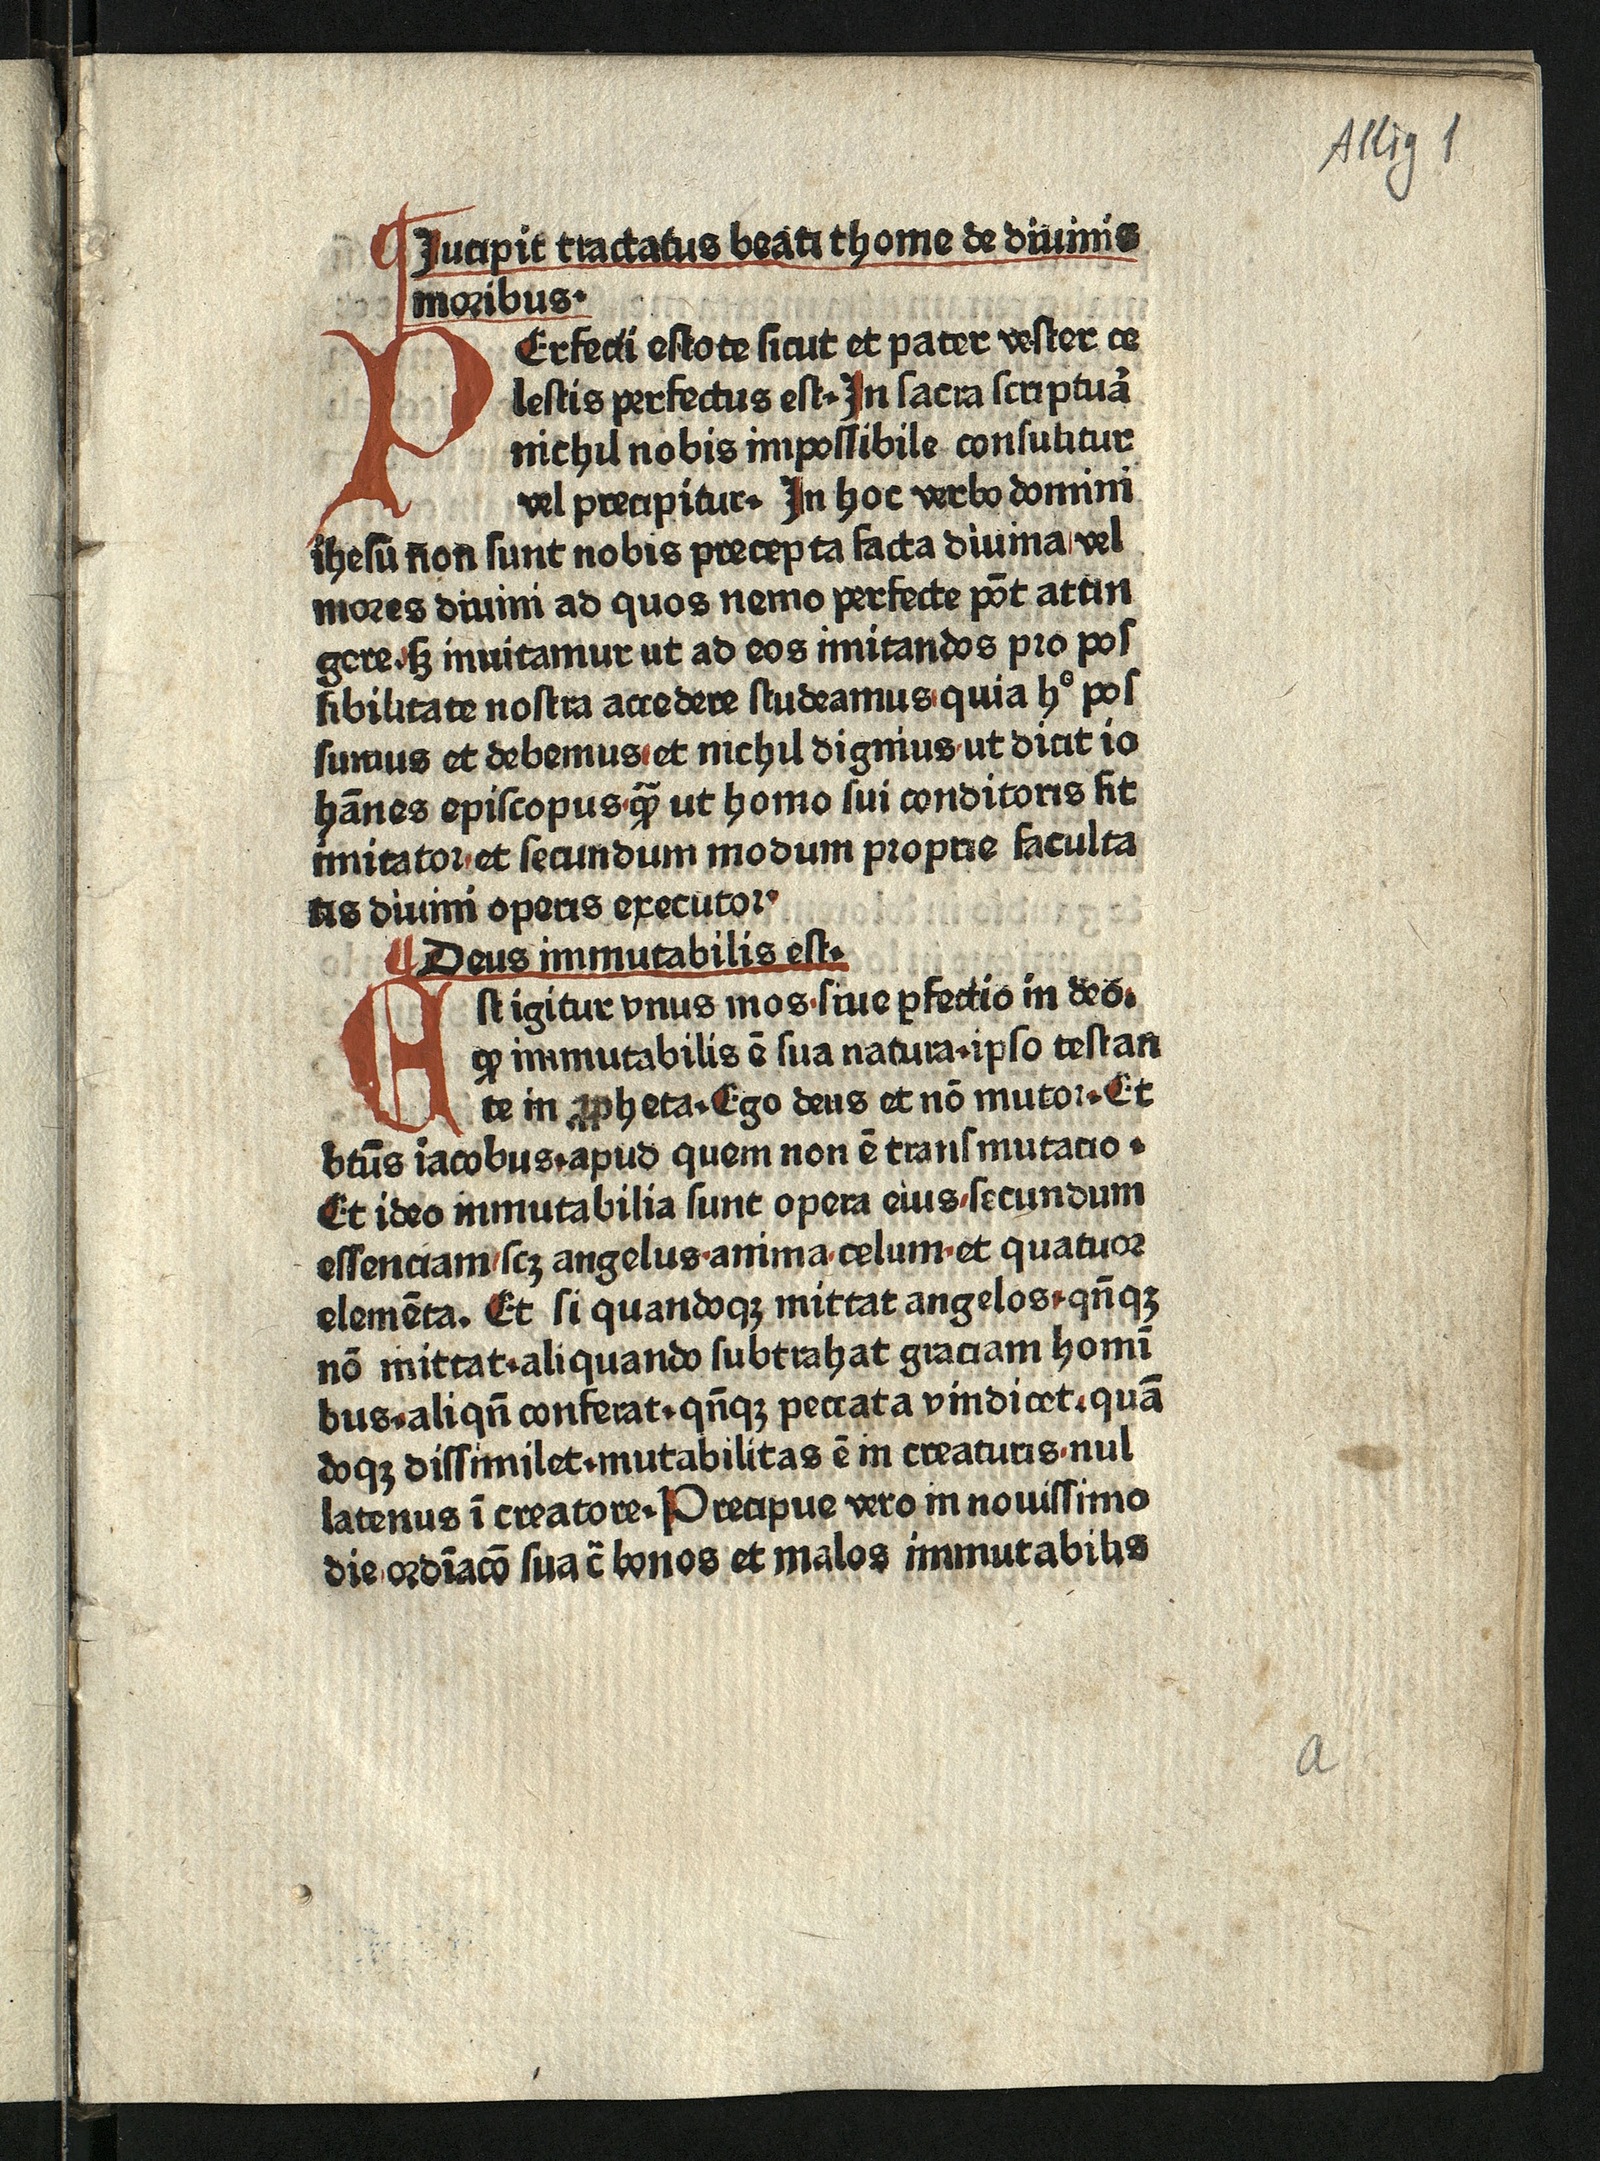 Allig 1
¶ Jucipit tractatus beati thome de diuinis
moribus.
PErfecti estote sicut et pater vester ce
lestis perfectus est. In sacra scriptura
nichil nobis impossibile consulitur
vel precipitur. In hoc verbo domini
ihesu non sunt nobis precepta facta diuina vel
mores diuini ad quos nemo perfecte põt attin
gere. sꝫ inuitamur ut ad eos imitandos pro pos
sibilitate nostra accedere studeamus quia hº pos
sumus et debemus et nichil dignius ut dicit io
hãnes episcopus qꝫ̃ ut homo sui conditoris sit
imitator et secundum modum proprie faculta
tis diuini operis executor.
¶ Deus immutabilis est.
Est igitur vnus mos siue ꝑfectio in deo.
ꝙ immutabilis ẽ sua natura. ipso testan
te in ꝓpheta. Ego deus et nõ mutor. Et
btũs iacobus. apud quem non ẽ transmutatio.
Et ideo inmutabilia sunt opera eius secundum
essenciam scꝫ angelus anima celum et quatuor
elemẽta. Et si quandoqꝫ mittat angelos. qñqꝫ
nõ mittat. aliquando subtrahat graciam homĩ
bus. aliqñ conferat. qñqꝫ peccata vindicet. quã
doqꝫ dissimilet. mutabilitas ẽ in creaturis nul
latenus ĩ creatore. Precipue vero in nouissimo
die ordĩacõ sua c̃ bonos et malos immutabilis
a